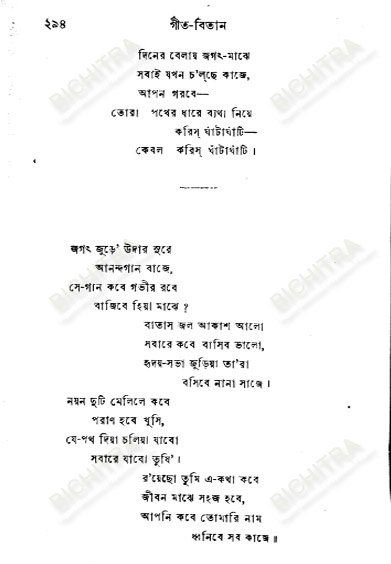 ২৯৪
গীত-বিতান
দিনের বেলায় জগৎ-মাঝে
সবাই যখন চ'ল্‌ছে কাজে,
আপন গরবে—
তোরা পথের ধারে ব্যথা নিয়ে
করিস্ ঘাঁটাঘাঁটি—
কেবল করিস্ ঘাঁটাঘাঁটি।
জগৎ জুড়ে' উদার সুরে
আনন্দগান বাজে,
সে-গান কবে গভীর রবে
বাজিবে হিয়া মাঝে?
বাতাস জল আকাশ আলো
সবারে কবে বাসিব ভালো,
হৃদয়-সভা জুড়িয়া তা'রা
বসিবে নানা সাজে।
নয়ন দুটি মেলিলে কবে
পরাণ হবে খুসি,
যে-পথ দিয়া চলিয়া যাবো
সবারে যাবো তুষি'।
র'য়েছো তুমি এ-কথা কবে
জীবন মাঝে সহজ হবে,
আপনি কবে তোমারি নাম
ধ্বনিবে সব কাজে॥
BICHITRA
BICHITRA
BICHITRA
BICHITRA
BICHITRA
BICHITRA